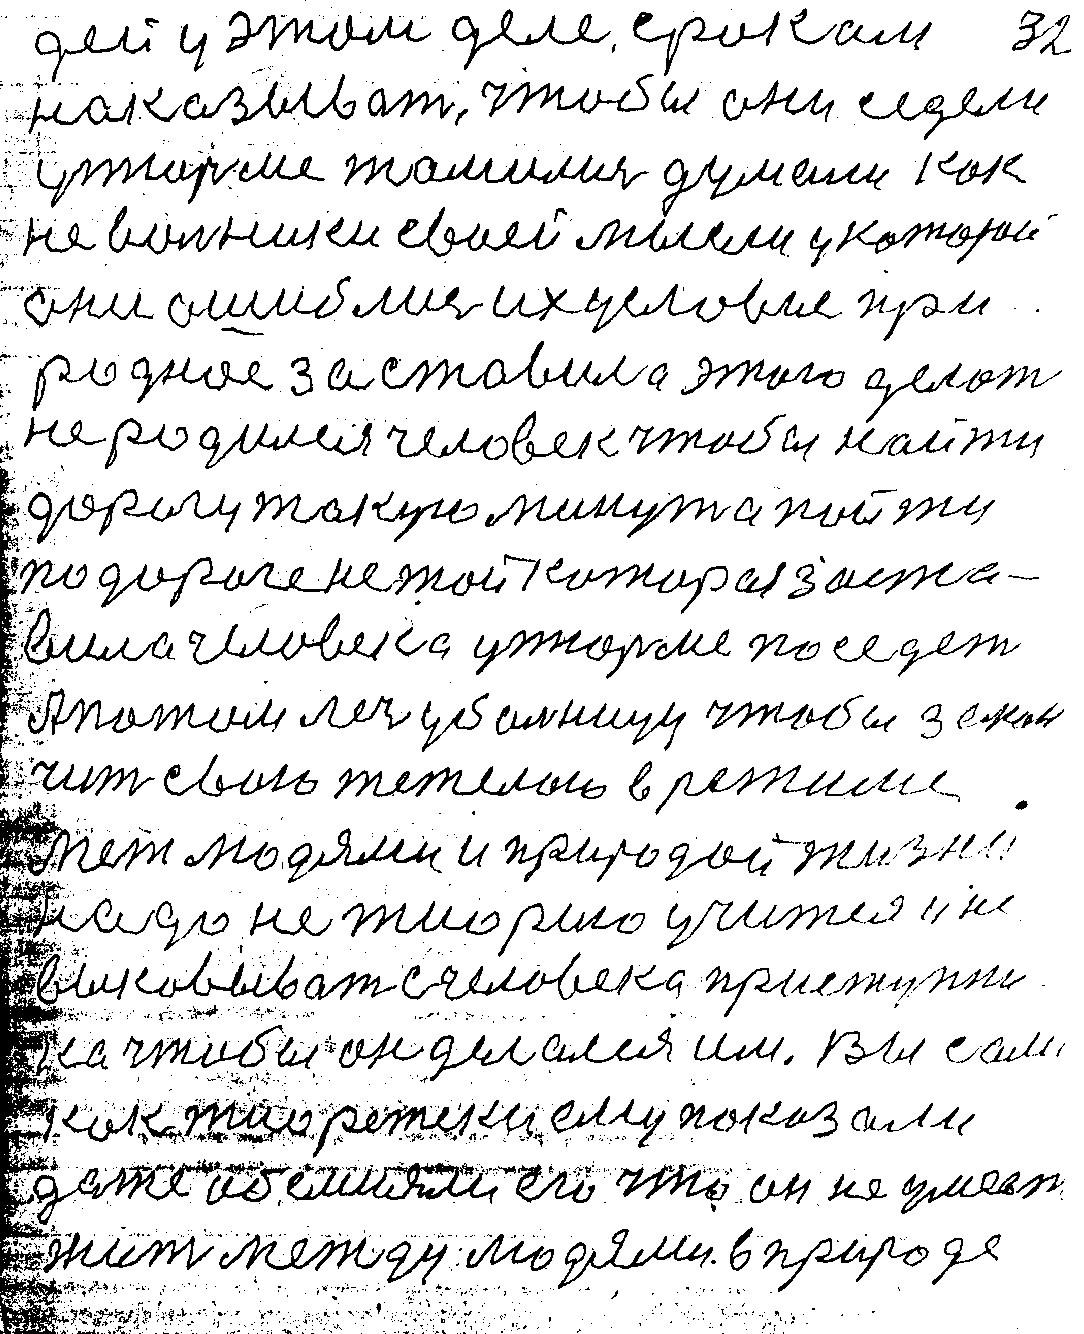 дей у этом деле, сроком 32
наказыват, чтобы они седели
у тюрме томилися думали как
невольники своей мысли у которой
они ошиблися их условие при
родное заставила этого делат
не родился человек чтобы найти
дорогу такую минута пойти
по дороге не той которая заста-
вила человека у тюрме поседет
А потом леч у больницу чтобы закон
чит свою тежелою в режиме
меж людями и природой жизни
надо не тиорию учится и не
выковыват с человека приступни
ка чтобы он делался им. Вы сами
как тиоретеки ему показали
даже обемнили его что он не умеет
жит между людями в природе